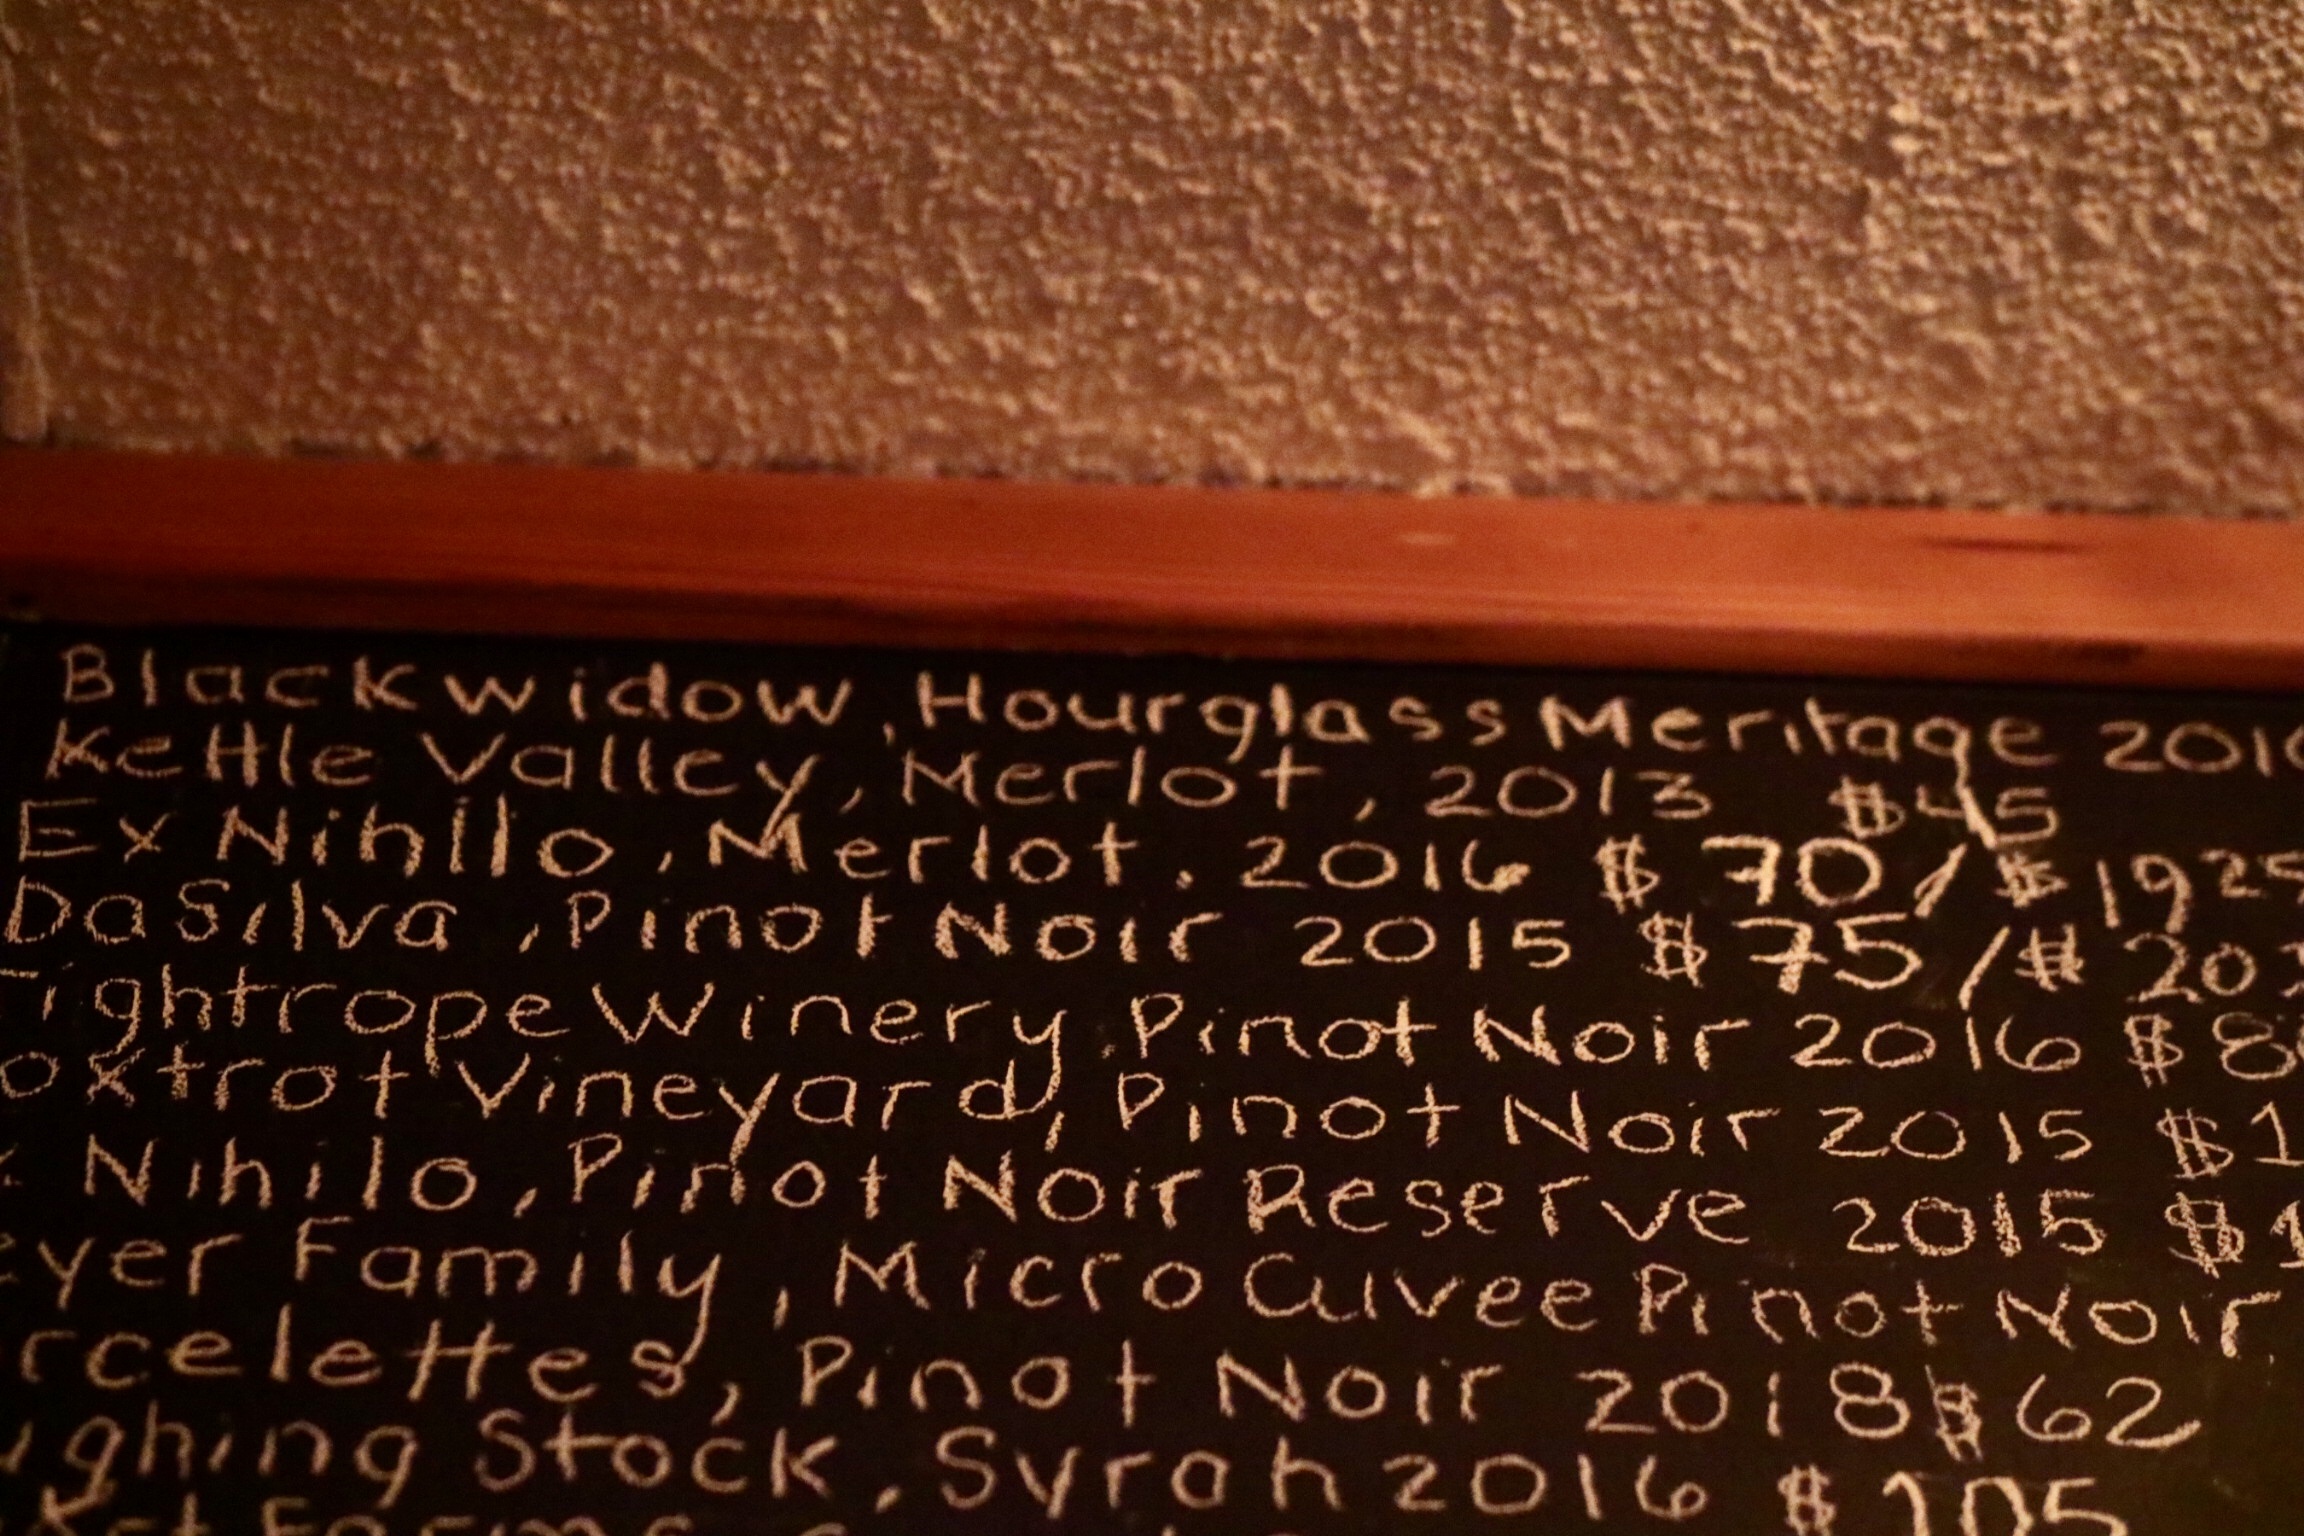 Blackwidow, Hourglass Meritage 201
Kettle Valley, Merlot, 2013 $45
Ex Nihilo, Merlot. 2016 $70/$1925
DaSilva, Pinot Noir 2015 $75/$20
Tightrope Winery Pinot Noir 2016 $8
oxtrot Vineyard, Pinot Noir 2015 $1
x Nihilo, Pinot Noir Reserve 2015 $1
eyer Family, Micro Cuvee Pinot Noir
rcelettes, Pinot Noir 2018 $62
ughing Stock, Syrah 2016 $105